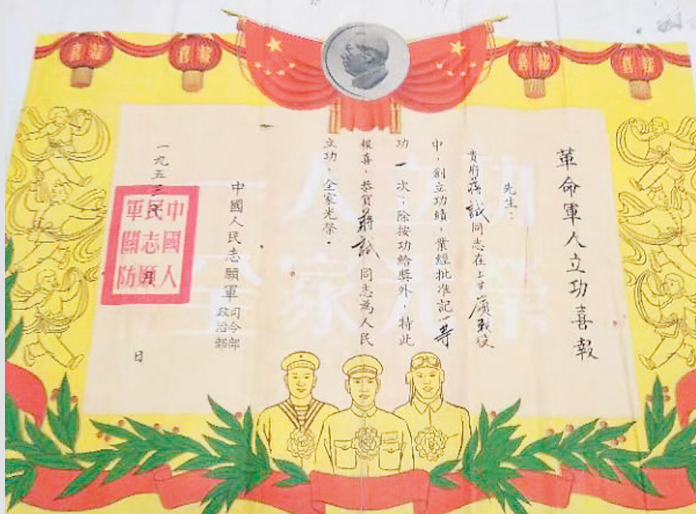 喜報
喜報
喜報
喜報
革命軍人立功喜報
先生：
貴府蔣誠同志在上甘嶺戰役
中，創立功績，業經批准記一等
功一次，除按功給獎外，特此
報喜，恭賀蔣誠同志為人民
立功，全家光榮。
中國人民志願軍司令部
政治部
一九五三 日
中國人
民志願
軍關防
一人立功
全家光榮